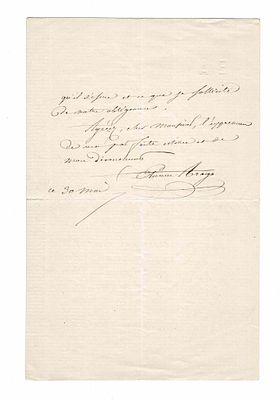 qu'il désire et ce que je sollicite
de votre obligeance.
Agréez, cher monsieur, l'expression
de ma parfaite estime et de
mon dévouement
Etienne Arago
ce 30 mai